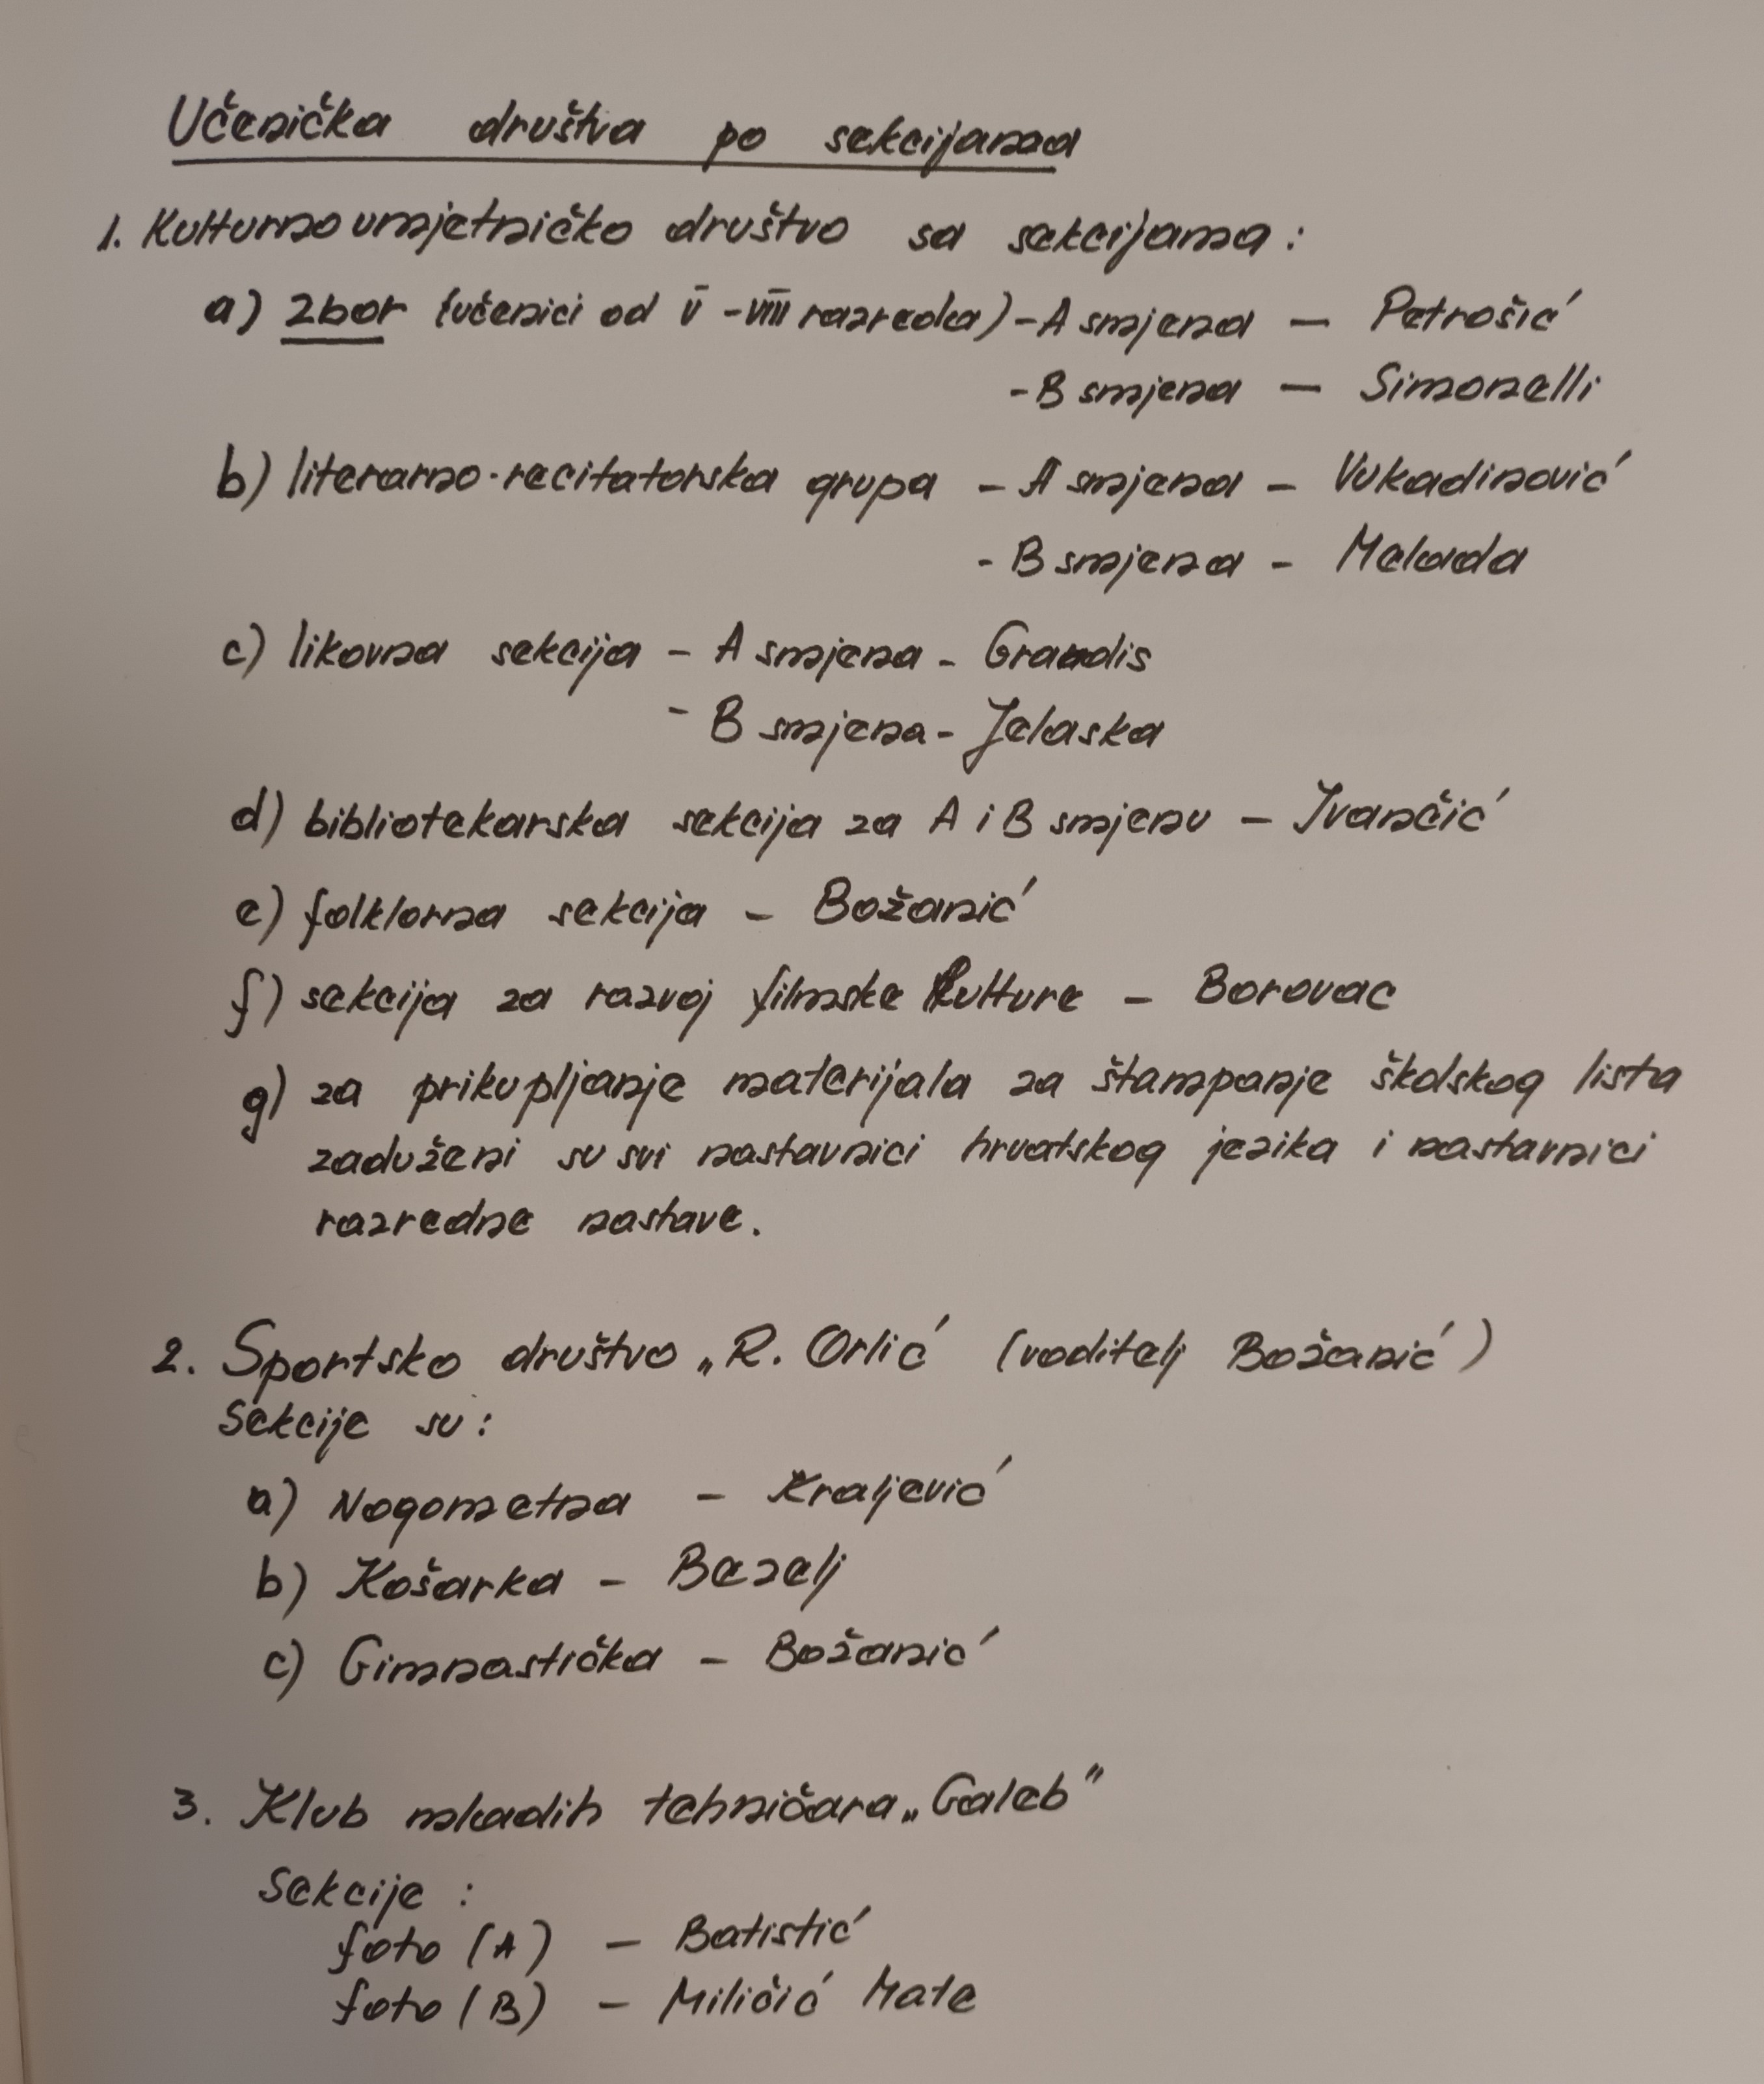 Učenička društva po sekcijama
1. Kulturno umjetničko društvo sa sekcijama:
a) Zbor (učenici od V - VIII razreda) - A smjena - Petrošić
- B smjena - Simonelli
b) literarno-recitatorska grupa - A smjena - Vukadinović
- B smjena - Melada
c) likovna sekcija - A smjena - Grandis
- B smjena - Jelaska
d) bibliotekarska sekcija za A i B smjenu - Ivančić
e) folklorna sekcija - Božanić
f) sekcija za razvoj filmske kulture - Borovac
g) za prikupljanje materijala za štampanje školskog lista
zaduženi su svi nastavnici hrvatskog jezika i nastavnici
razredne nastave.
2. Sportsko društvo „R. Orlić (voditelj Božanić)
Sekcije su:
a) Nogometna - Kraljević
b) Košarka - Bezelj
c) Gimnastička - Božanić
3. Klub mladih tehničara „Galeb"
Sekcije :
foto (A) - Batistić
foto (B) - Miličić Mate